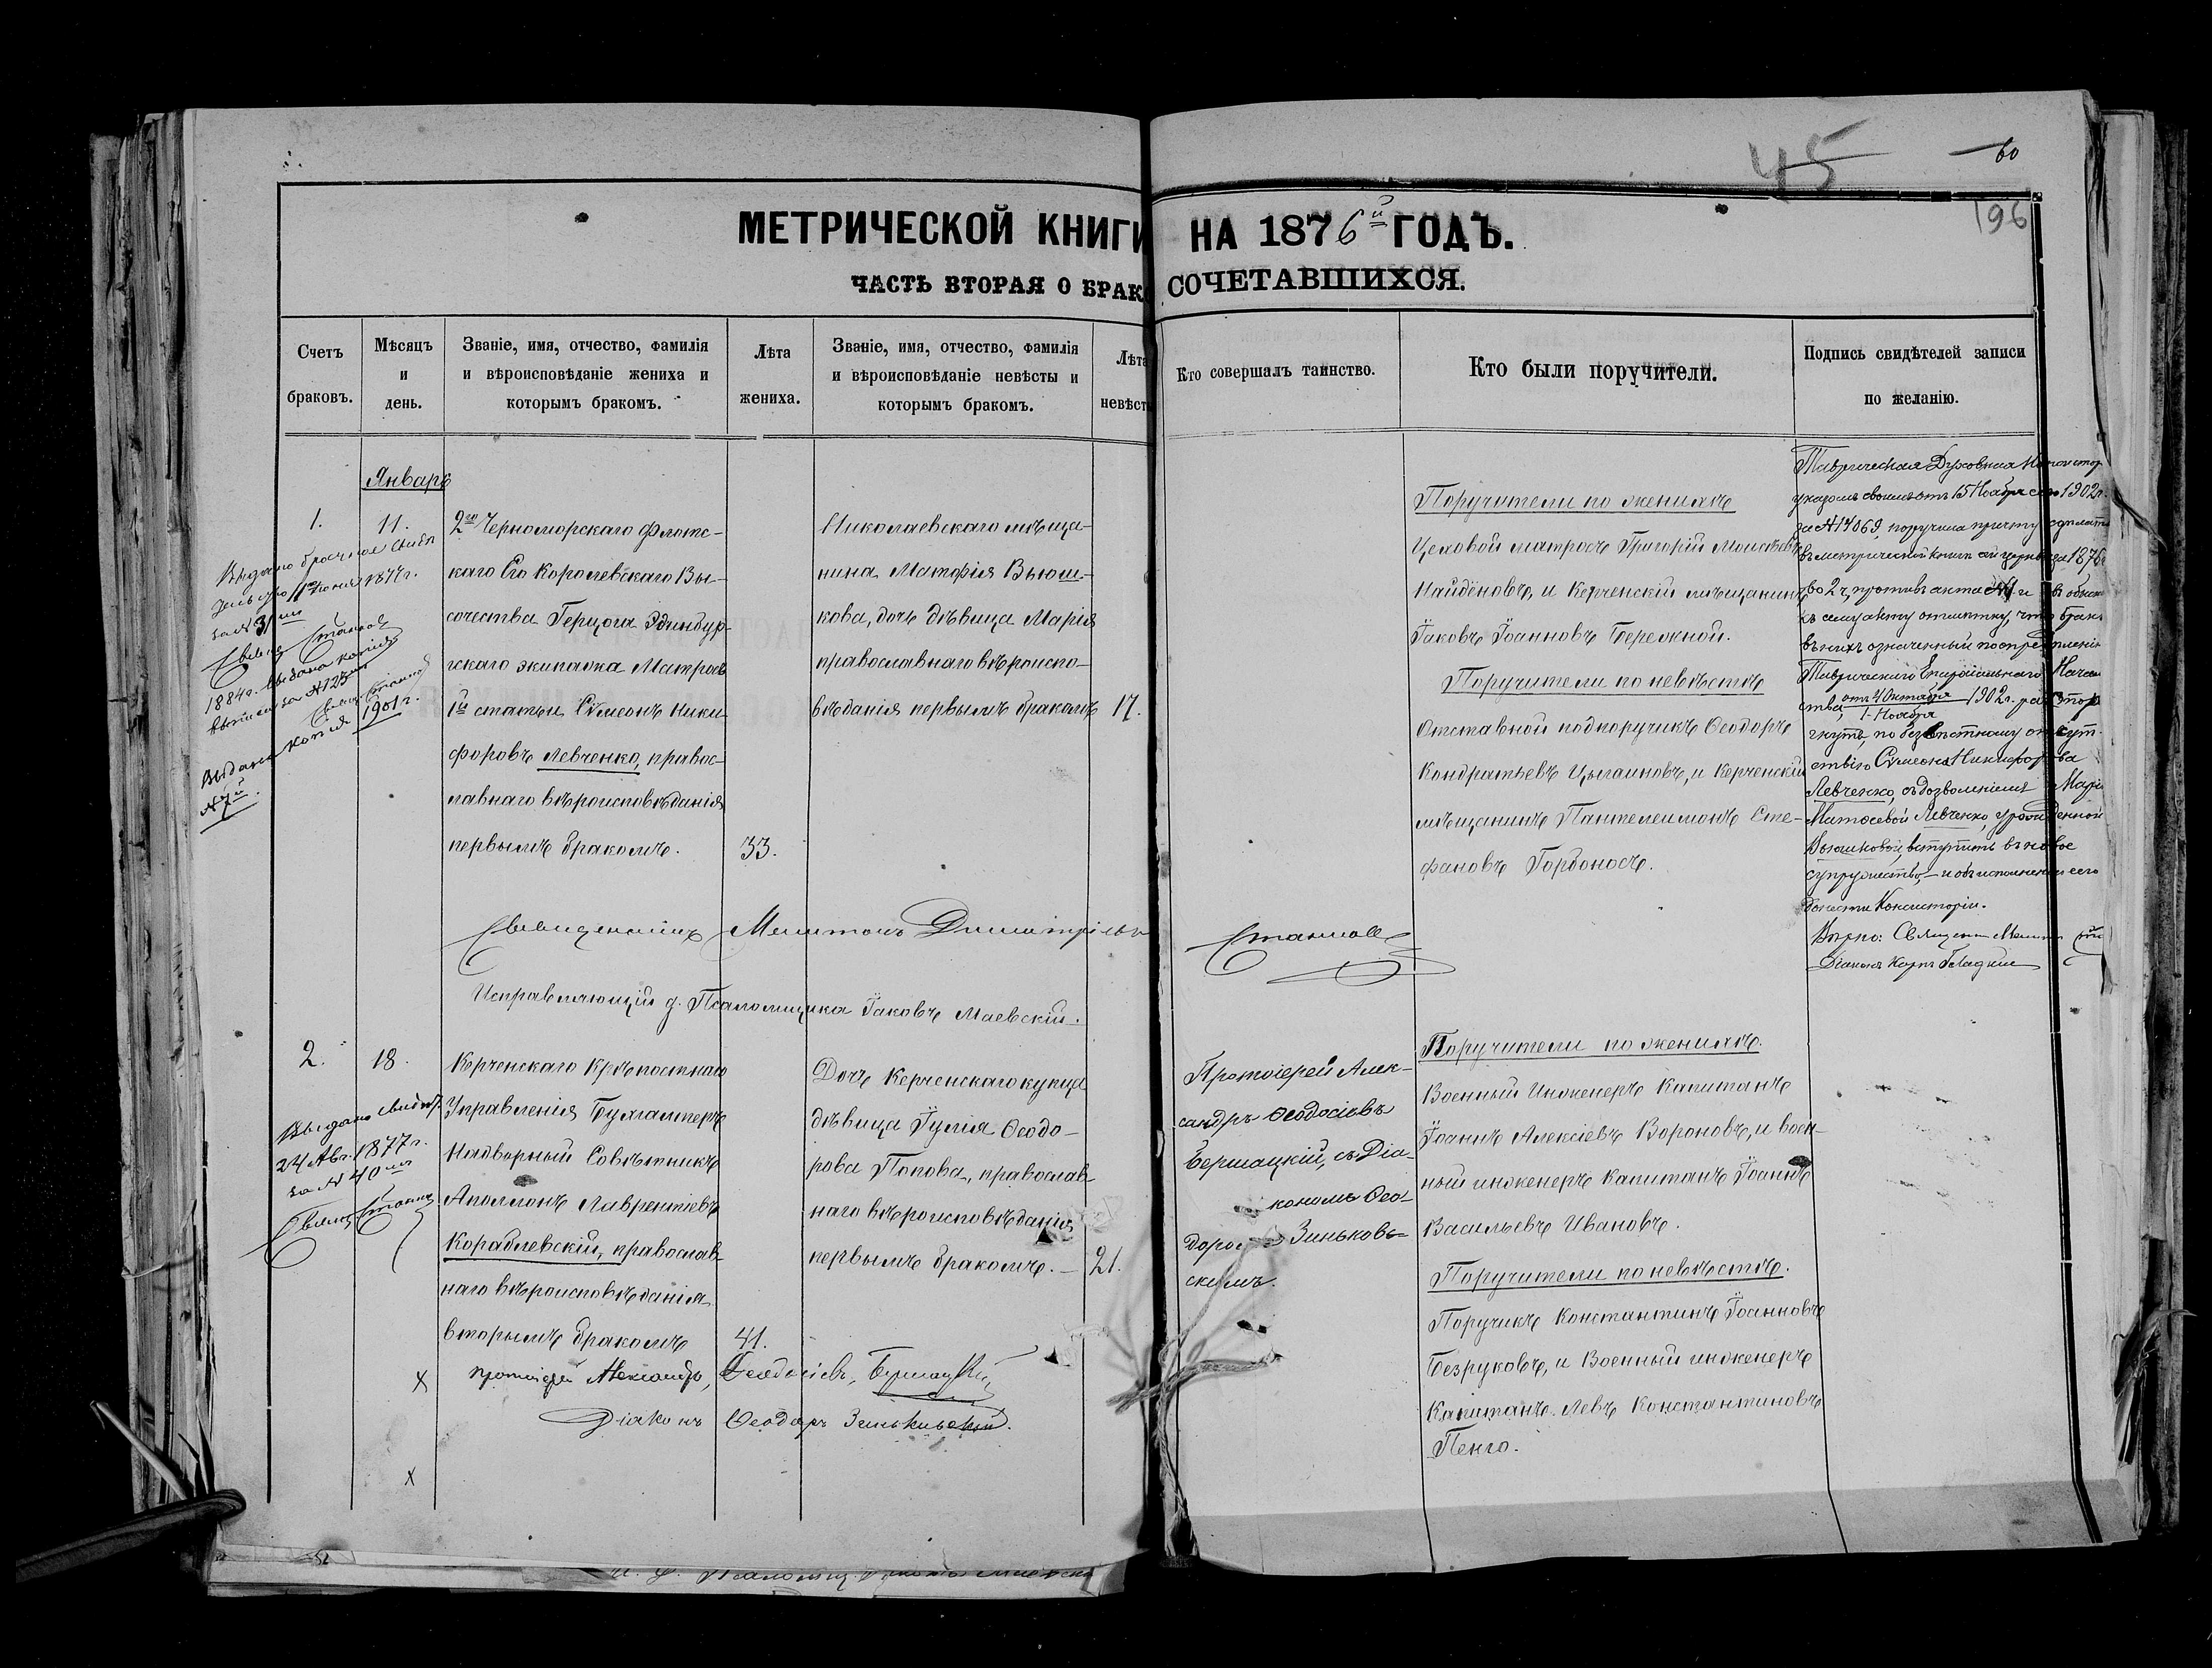 45
60
196
МЕТРИЧЕСКОЙ КНИГИ НА 1876й ГОДЪ.
ЧАСТЬ ВТОРАЯ О БРАКО СОЧЕТАВШИХСЯ.
Счетъ браковъ.
Мѣсяцъ и день.
Званіе, имя, отчество, фамилія
и вѣроисповѣданіе жениха и
которымъ бракомъ.
Лѣта
жениха.
Званіе, имя, отчество, фамилія
и вѣроисповѣданіе невѣсты и
которымъ бракомъ.
Лѣта
невѣсты
Кто совершалъ таинство.
Кто были поручители.
Подпись свидѣтелей записи
по желанію.
Январь
1.
11.
Выдано брачное свид
11 Іюня 1877 г.
за № 31
1884 г. Выдана копія
за № 123
Выдана копія 1901 г.
№ 7й.
2го Черноморскаго Флотс-
каго Его Королевскаго Вы-
сочества Герцога Эдинбур-
гскаго экипажа Матросъ
1й статьи Сѵмеонъ Ники-
форовъ Левченко, правос-
лавнаго вѣроисповѣданія
первымъ бракомъ.
33.
Николаевскаго мѣща-
нина Матѳія Вьюш-
кова, дочь дѣвица Марія
православнаго вѣроиспо-
вѣданія первымъ бракомъ
17.
Поручители по женихѣ
Цеховой матросъ Григорій Моисѣевъ
Найденовъ, и Керченскій мѣщанинъ
Іаковъ Іоанновъ Бережной.
Поручители по невѣстѣ
Отставной подпоручикъ Ѳеодоръ
Кондратьевъ Цыгановъ, и Керченскій
мѣщанинъ Пантелеимонъ Сте-
фановъ Горбоносъ.
Таврическая Духовная Консистор
указомъ своимъ отъ 15 Ноября сего 1902 г.
за № 17069, поручила причту сдѣлать
въ метрической книгѣ сей церкви за 1876 г
во 2 ч, противъ акта № 1 и въ
къ сему акту отмѣтку, что бракъ
въ нихъ означенный
Таврическаго Епархіальнаго Начал
ства, отъ 4 Октября / 1 Ноября 1902 г. растор
гнутъ, по безвѣстному отсут-
ствію Сѵмеона Никифорова
Левченко, съ дозволеніемъ Маріи
Матѳеевой Левченко, урожденной
Вьюшковой, вступить въ новое
супружество, — и объ исполненіи сего
донести Консисторіи.
Вѣрно: Священ
Діаконъ Гладкій
Священникъ Мелитонъ Димитріевъ Станиславскій
Исправляющій д. Псаломщика Іаковъ Маевскій.
2.
18.
Выдано свидѣт.
24 Авг. 1877 г.
за № 40
Керченскаго Крѣпостнаго
Управленія Бухгалтеръ
Надворный Совѣтникъ
Аполлонъ Лаврентіевъ
Кораблевскій, православ-
наго вѣроисповѣданія
вторымъ бракомъ
41.
Дочь Керченскаго купца
дѣвица Іулія Ѳеодо-
рова Попова, православ-
наго вѣроисповѣданія
первымъ бракомъ. —
21.
Протоіерей Алек-
сандръ Ѳеодосіевъ
Бершацкій, съ Діа-
кономъ Ѳео-
доромъ Зиньков-
скимъ.
Поручители по женихѣ.
Военный Инженеръ Капитанъ
Іоаннъ Алексіевъ Вороновъ, и воен-
ный инженеръ Капитанъ Іоаннъ
Васильевъ Ивановъ.
Поручители по невѣстѣ.
Поручикъ Константинъ Іоанновъ
Безруковъ, и Военный инженеръ
Капитанъ Левъ Константиновъ
Пенго.
х протоіерей Александръ Ѳеодосіевъ Бершацкій
Діаконъ Ѳеодоръ Зиньковскій.
х